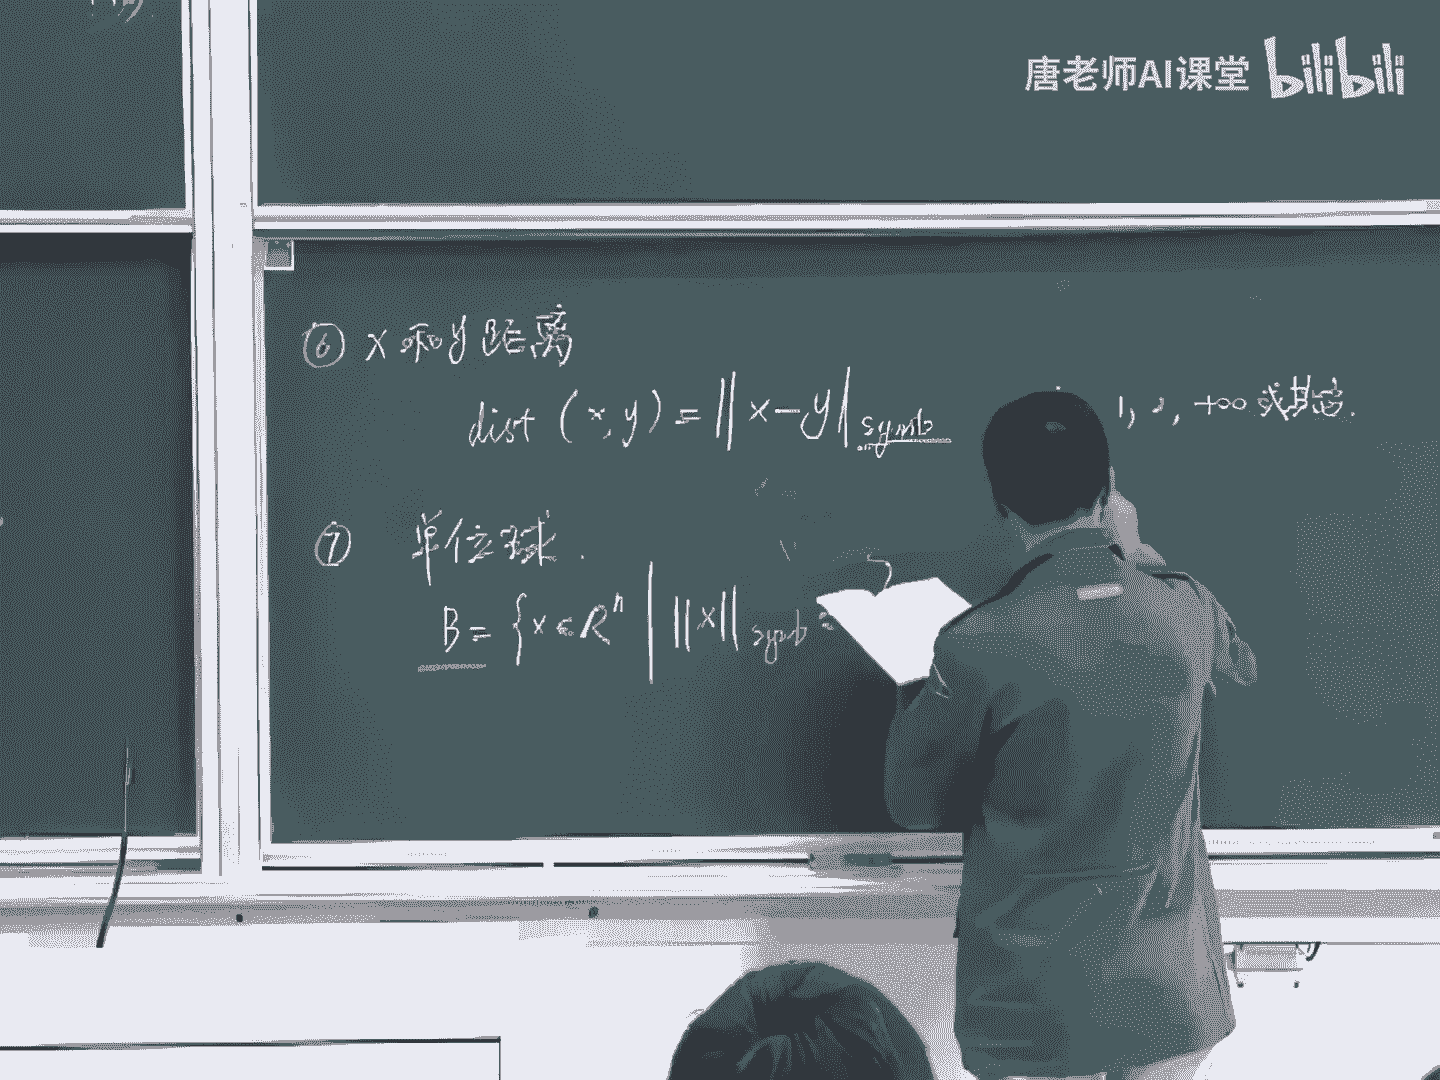 唐老师AI课堂 bilibili
⑥ x 和 y 距离
dist (x, y) = ||x-y|symb 1, 2, +∞ 或其它.
⑦ 单位球.
B = {x ∈ Rⁿ | ||x|| symb